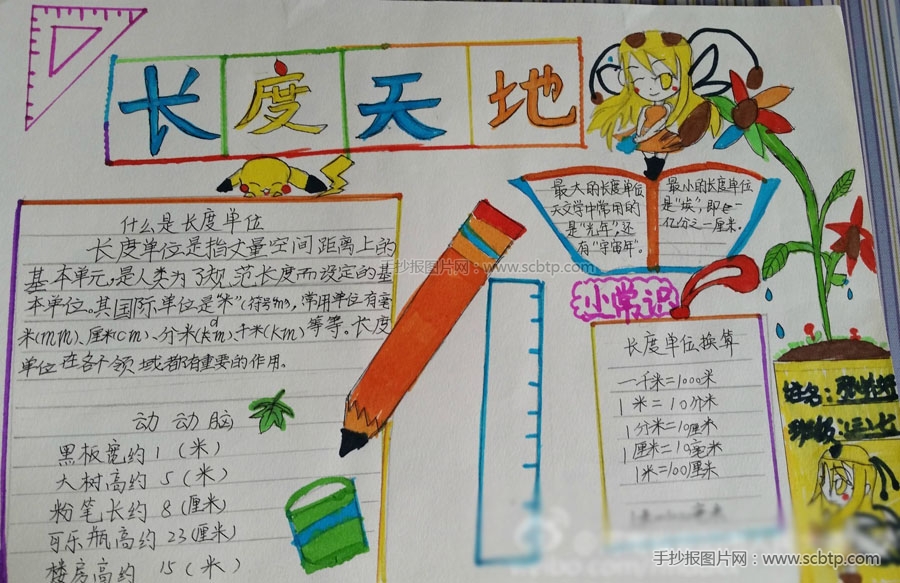 长度天地
什么是长度单位
长度单位是指丈量空间距离上的
基本单元，是人类为了规范长度而设定的基
本单位。其国际单位是“米”(符号m)，常用单位有毫
米(mm)、厘米(cm)、分米(dm)、千米(km)等等。长度
单位在各个领域都有重要的作用。
动动脑
黑板宽约1(米)
大树高约5(米)
粉笔长约8(厘米)
可乐瓶高约23(厘米)
楼房高约15(米)
最大的长度单位
天文学中常用的
是“光年”，还
有“宇宙年”。
最小的长度单位
是“埃”，即
亿分之一厘米。
小常识
长度单位换算
一千米=1000米
1米=10分米
1分米=10厘米
1厘米=10毫米
1米=100厘米
姓名:
班级:三、七
手抄报图片网：www.scbtp.com
手抄报图片网：www.scbtp.com